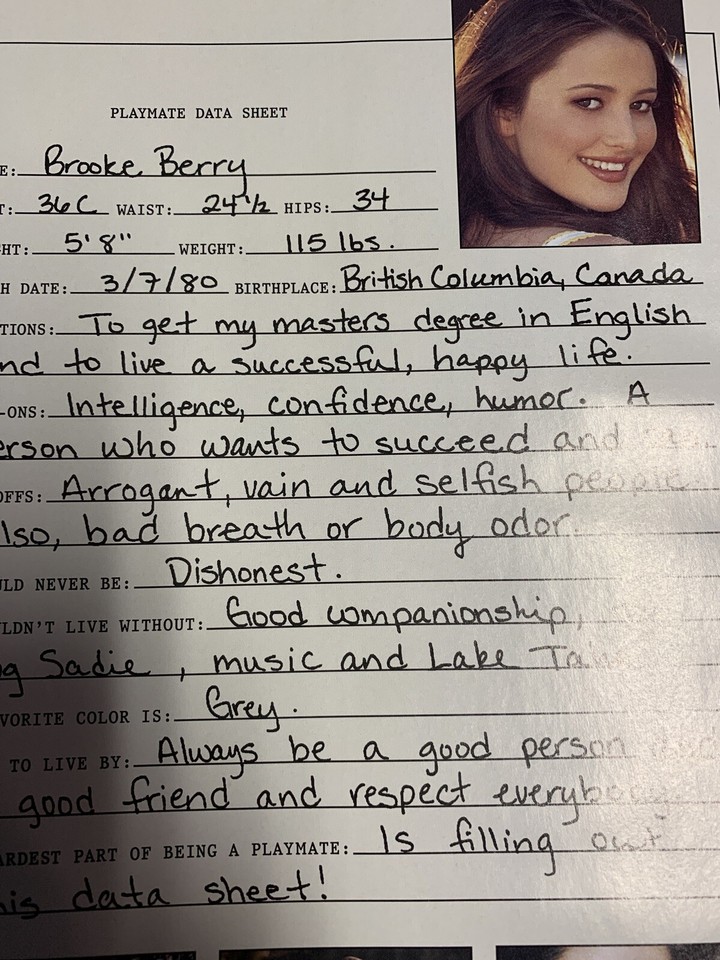 PLAYMATE DATA SHEET
E: Brooke Berry
T: 36C WAIST: 24 1/2 HIPS: 34
HT: 5'8" WEIGHT: 115 lbs.
H DATE: 3/7/80 BIRTHPLACE: British Columbia, Canada
TIONS: To get my masters degree in English
nd to live a successful, happy life.
-ONS: Intelligence, confidence, humor. A
erson who wants to succeed and
OFFS: Arrogant, vain and selfish people.
lso, bad breath or body odor.
LD NEVER BE: Dishonest.
LDN'T LIVE WITHOUT: Good companionship,
g Sadie, music and Lake
VORITE COLOR IS: Grey.
TO LIVE BY: Always be a good person
good friend and respect everybody.
ARDEST PART OF BEING A PLAYMATE: Is filling out
his data sheet!